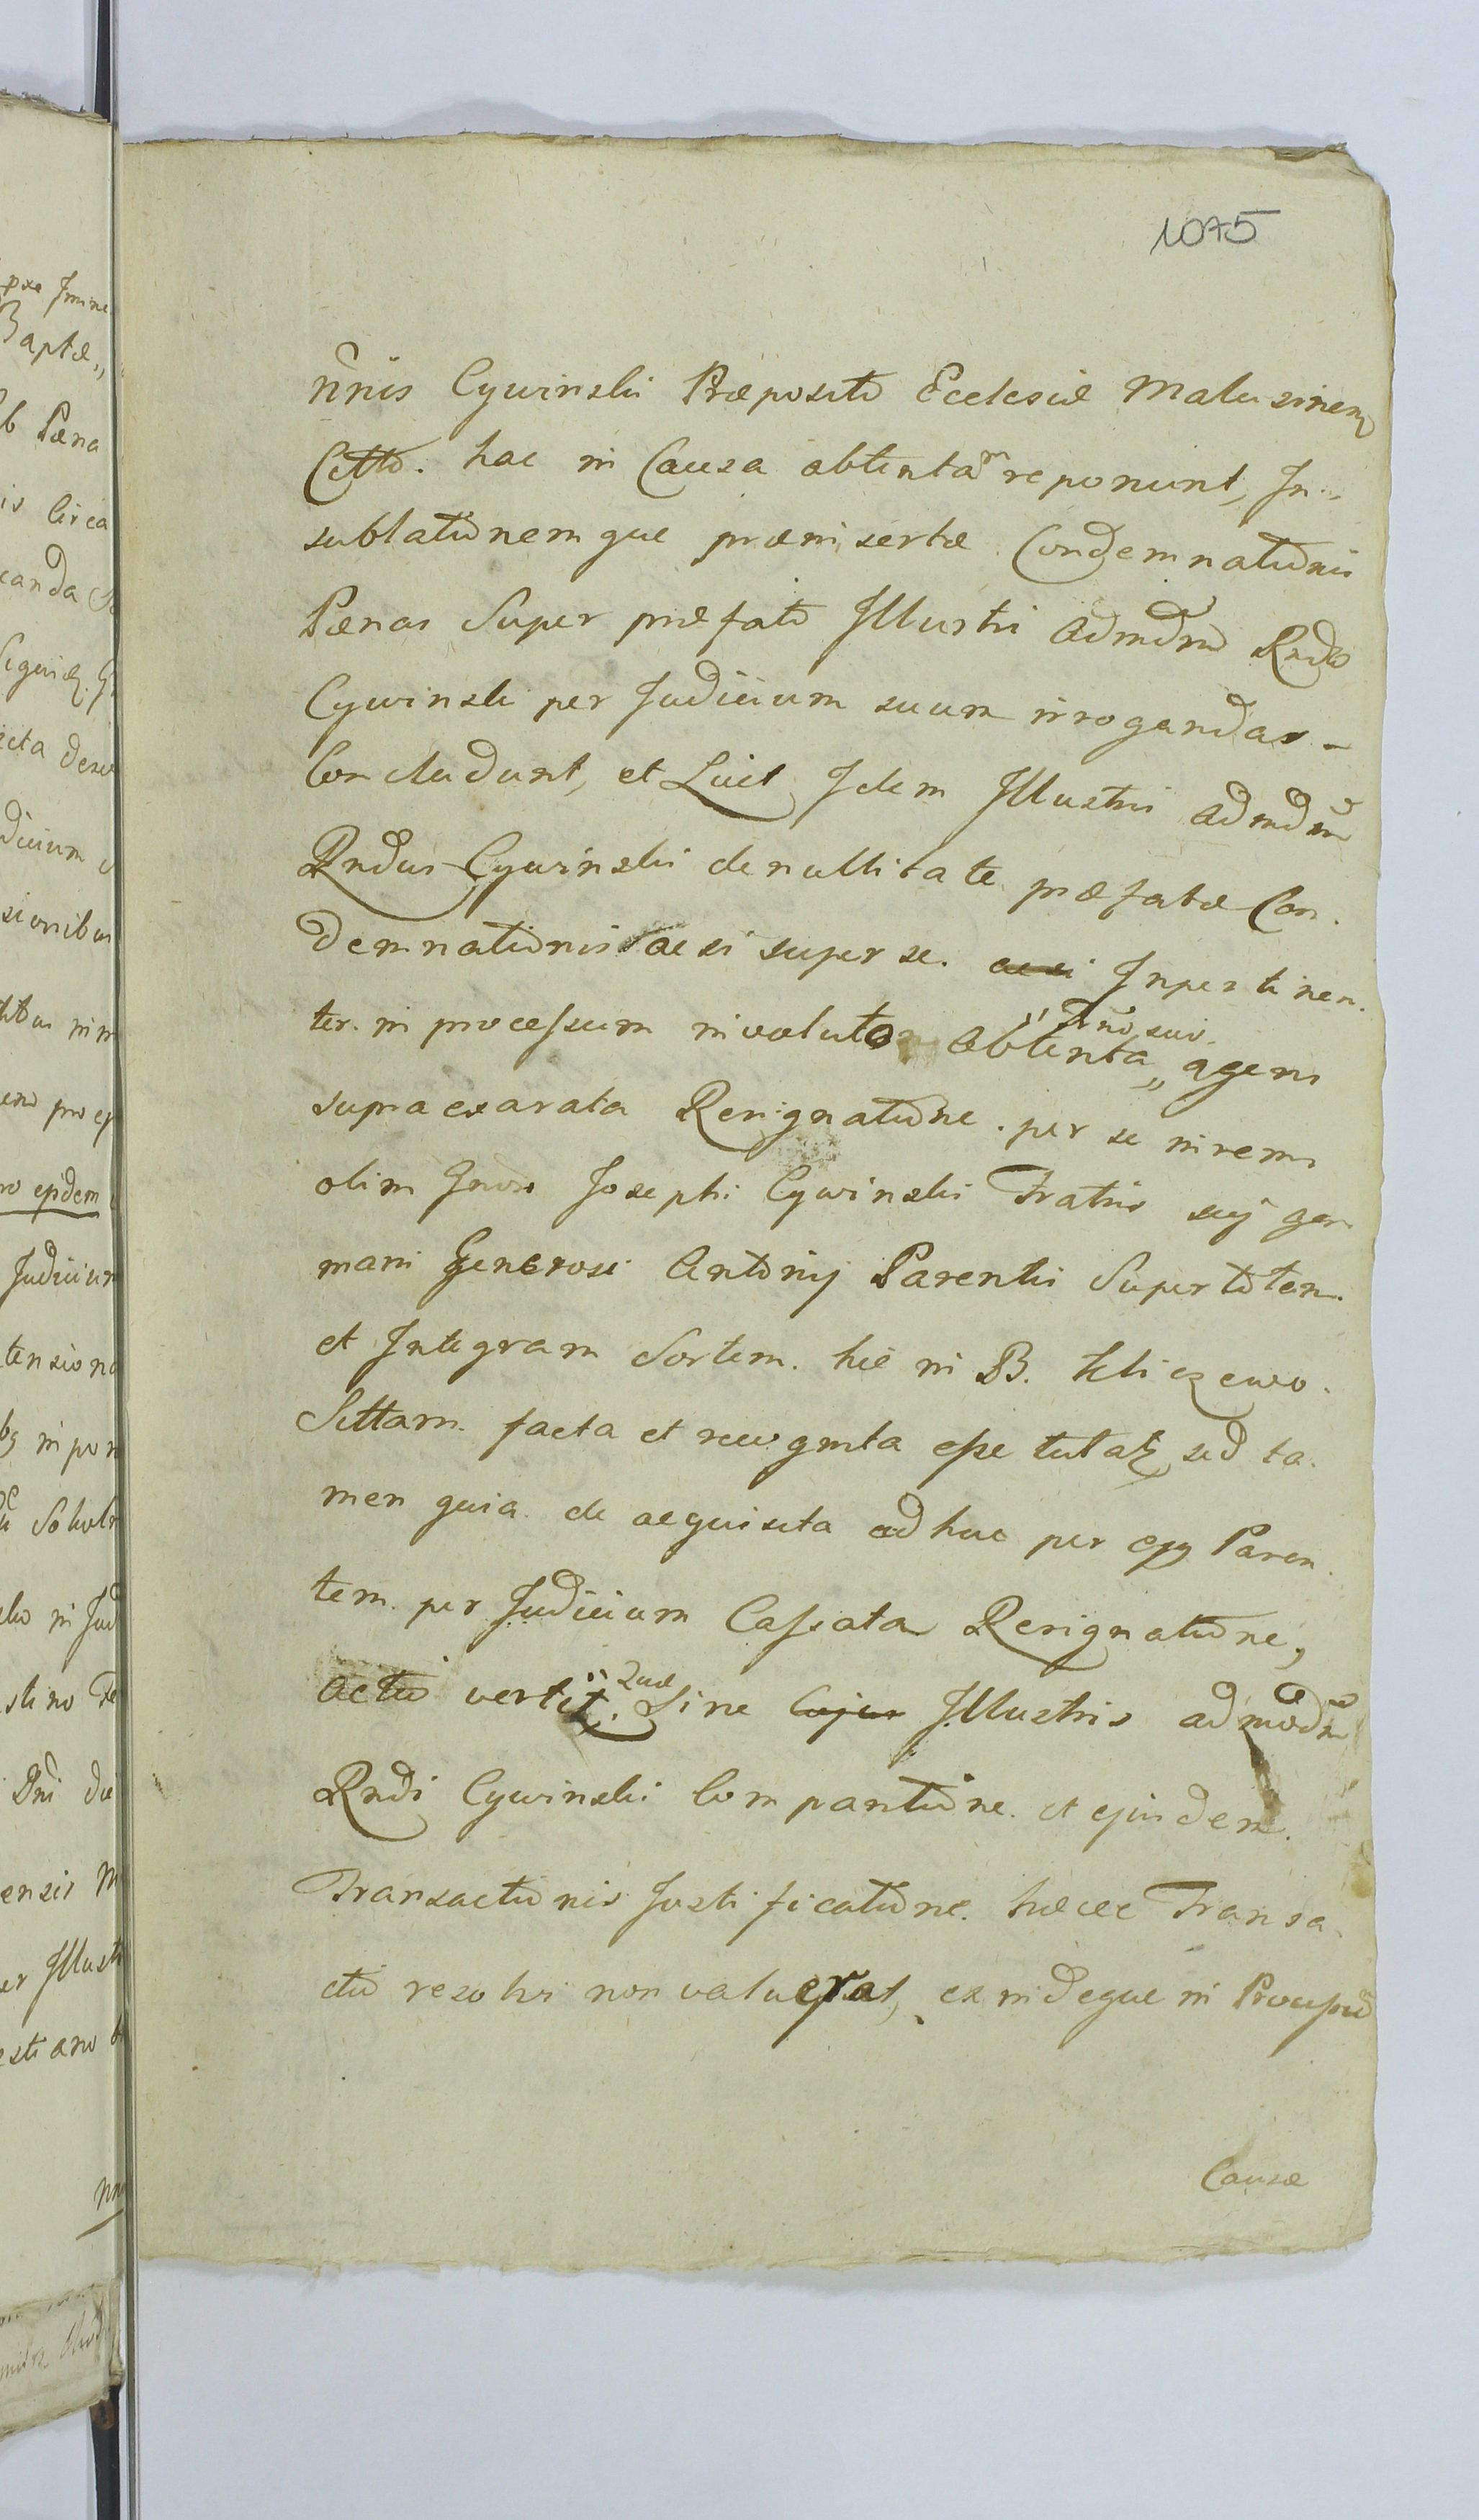 1075
n̄nis Cywinski Præposito Ecclesiæ Maluzinen
Citto. hac in Causa obtentam reponunt, In„
sublationemque præmissertæ Condemnationis
Pænas Super præfato Illustri Admdm Rndo
Cywinski per Judicium suum irrogandas –
Concludunt, et Licet Idem Illustris admdm
Rndus Cywinski de nullitate præfatæ Con.
demnationis ac si super se. ac si Inpertinen.
ter. in processum involuto obtenta„ „Fno suo agens
supra exarata Resignatione. per se in rem
olim Gnosi Josephi Cywinski Fratris suj ger
mani Generosi Antonij Parentis Super totam.
et Integram Sortem. hic in B. Kliczewo.
Sittam. facta et recognita esse tutatz, sed ta.
men quia de acquisita adhuc per ejq Paren.
tem. per Judicium Cassata Resignatione,
actio vertit„. „Quæ Sine Cujus Illustris admodm
Rndi Cywinski Comparitione. et ejusdem.
Transactionis Justificatione. hæcce Transa.
ctio resolvi non valuerat, exindeque in Processu
Causæ
pxæ Imine
Baptæ„
Pæna
circa
canda
ecta
dicium
sionibus
pro
ejsdem
Judicium
tensiona
in pon
in Jud
Dni die
ensis M
er Illust